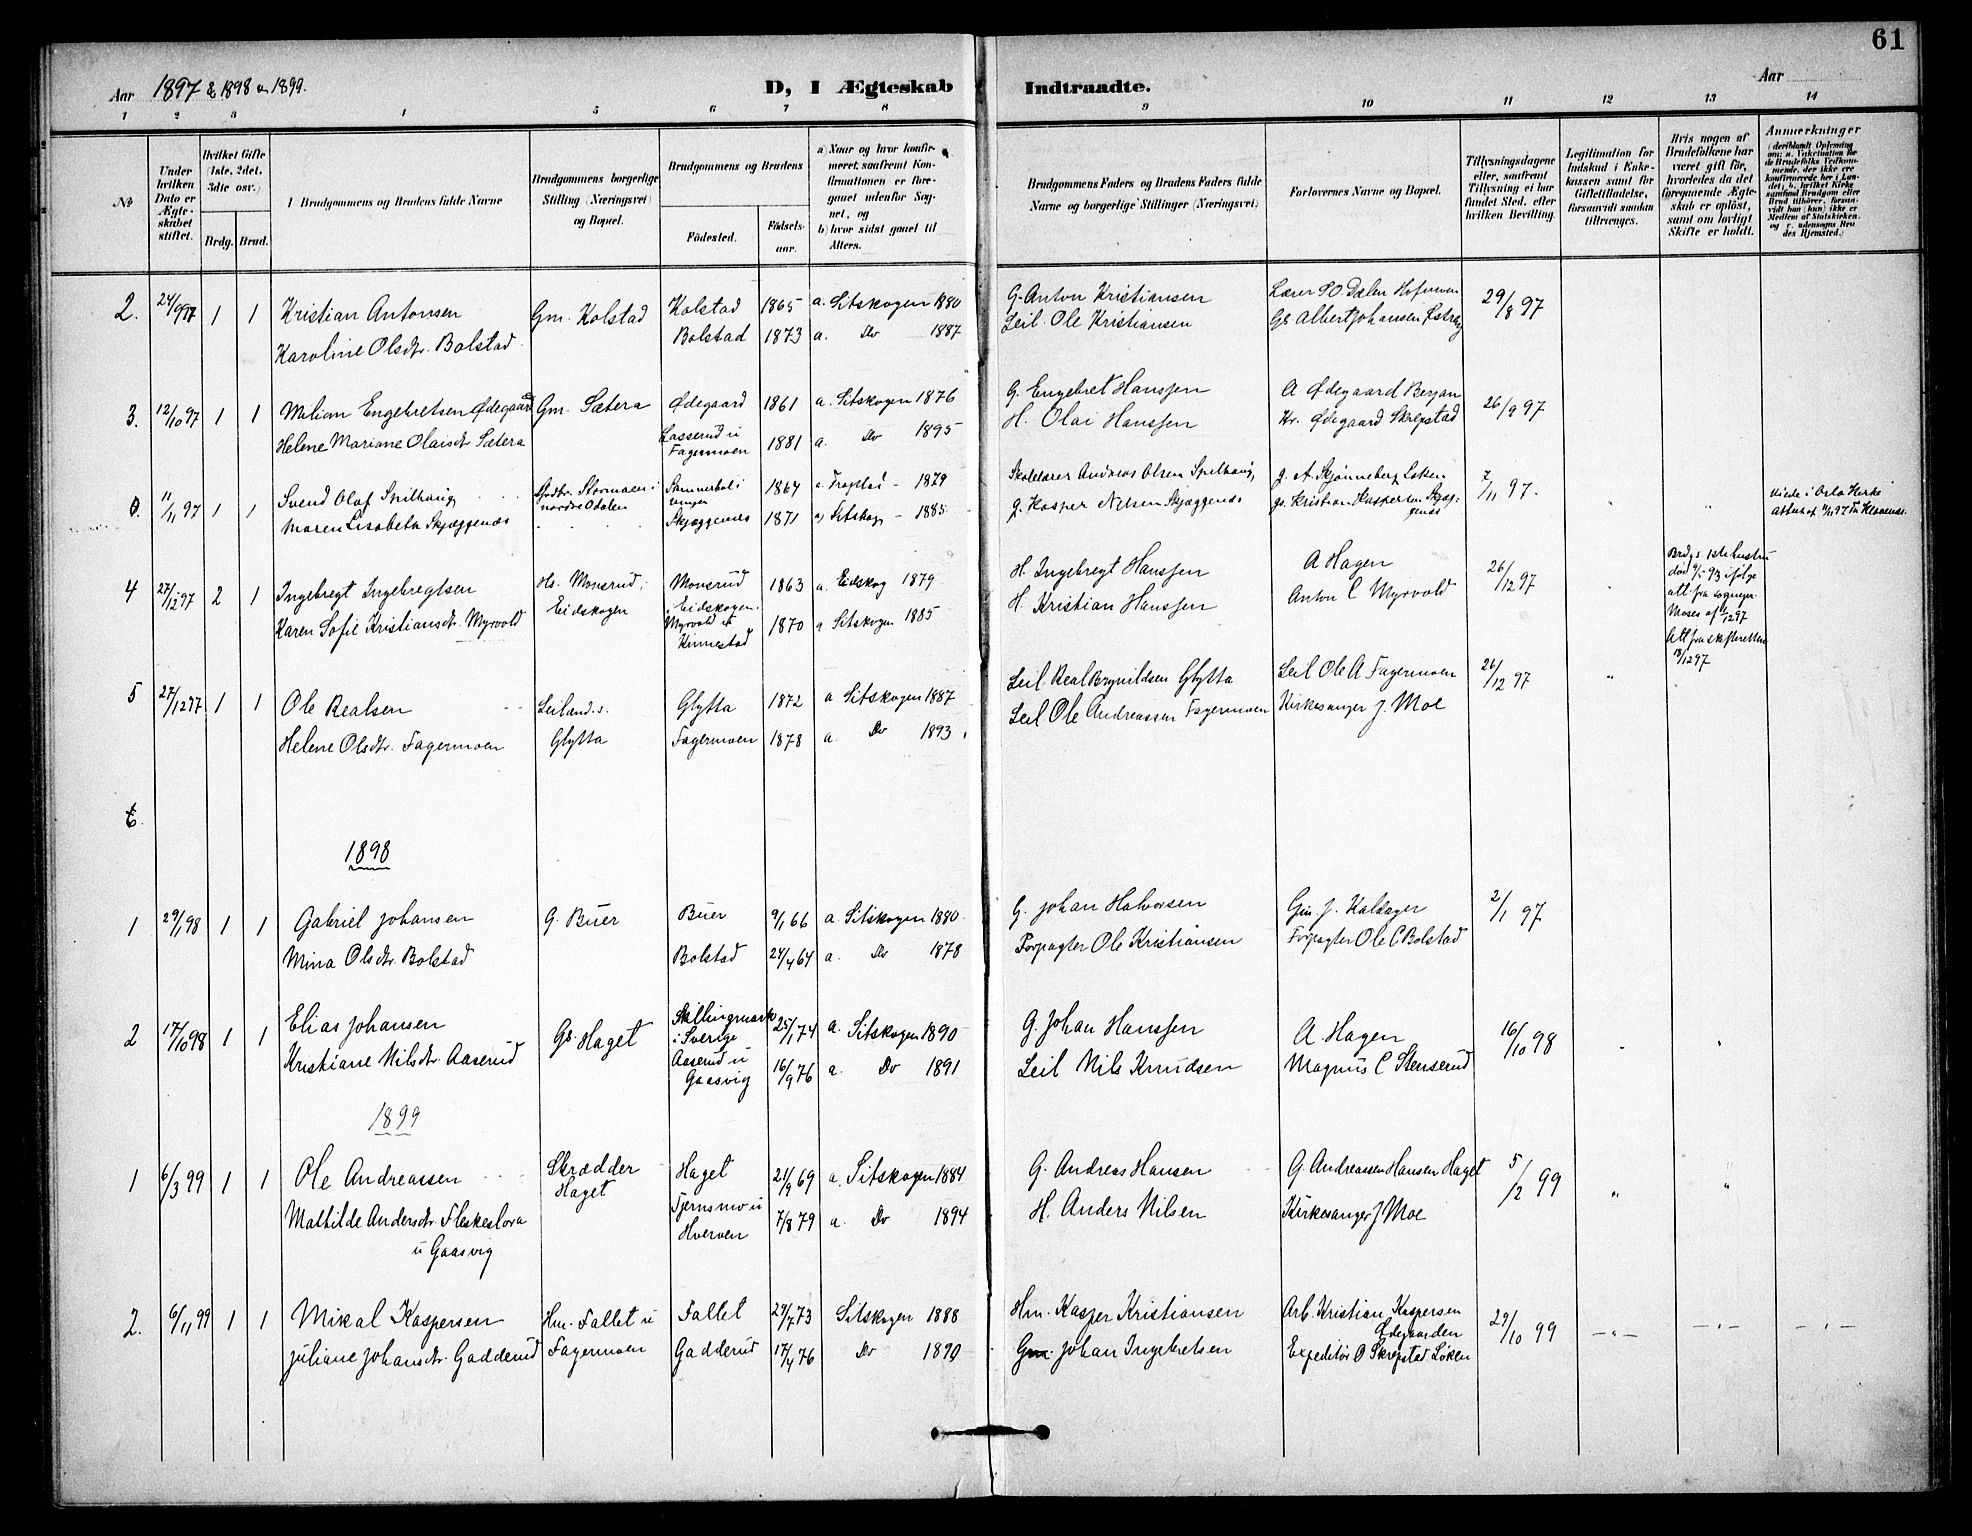 61
Aar 1897 & 1898 & 1899.
D, I Ægteskab Indtraadte.
Aar
1 2 3 4 5 6 7 8 9 10 11 12 13 14
No
Under hvilken Dato er Ægteskabet stiftet.
Hvilket Gifte (1ste, 2det, 3die osv.)
Brdg. Brud.
I Brudgommens og Brudens fulde Navne
Brudgommens borgerlige Stilling (Næringsvei) og Bopæl.
Brudgommens og Brudens
Fødested. Fødselsaar.
a) Naar og hvor konfirmeret, saafremt Konfirmationen er foregaaet udenfor Sognet, og
b) hvor sidst gaaet til Alters.
Brudgommens Faders og Brudens Faders fulde Navne og borgerlige Stillinger (Næringsvei)
Forlovernes Navne og Bopæl.
Tillysningsdagene eller, saafremt Tillysning ei har fundet Sted, efter hvilken Bevilling.
Legitimation for Indskud i Enkekassen samt for Giftetilladelse, forsaavidt saadan tiltrænges.
Hvis nogen af Brudefolkene har været gift før, hvorledes da det foregaaende Ægteskab er opløst, samt om lovligt Skifte er holdt.
Anmerkninger
2. 24/9 97 1 1 Kristian Antonsen Gm. Kolstad Kolstad 1865 a. Sitskogen 1880 G. Anton Kristiansen Lærer P.O. Dælen 29/8 97
Karoline Olsdtr. Bolstad Bolstad 1873 a. Do 1887 Leil. Ole Kristiansen Gb. Albert Johansen
3. 12/10 97 1 1 Milian Engebretsen Ødegaard Gm. Sætera Ødegaard 1861 a. Sitskogen 1876 G. Engebret Hanssen A Ødegaard Berjan 26/9 97
Helene Mariane Olaisdtr Sætera Lasserud u Fagermoen 1881 a. Do 1895 H. Olai Hanssen Kr. Ødegaard Skrepstad
0. 11/11 97 1 1 Svend Olaf Spilhaug Stormoen i nordre Odalen 1864 a. Trøgstad 1879 Skolelærer Andreas Olsen Spilhaug g. A. Skjønneberg Løken 7/11 97.
Maren Lisabeta Skjæggenæs Skjæggenæs 1871 a) Sitskog 1885 g. Kasper Nelsen Skjæggenæs gs. Kristian Kaspersen Skjæggenæs
4 27/12 97 2 1 Ingebregt Ingebregtsen Hs. Monsrud i Eidskogen Monsrud i Eidskogen. 1863 a. Eidskog 1879 H. Ingebregt Hanssen A Hagen 26/12 97 " Brdgs 1ste hustru død 9/5 93 ifølge att fra sognepr. Moses af
Karen Sofie Kristiansdtr. Myrvold Myrvold u Kinnestad 1870 a Sitskogen 1885 H. Kristian Hanssen Anton C Myrvold Att fra skifteretten 13/12 97
5 27/12 97 1 1 Ole Realsen Leiland.s. Glytta Glytta 1872 a Sitskogen 1887 Leil. Real Brynildsen Glytta Leil Ole A Fagermoen 26/12 97 "
Helene Olsdtr. Fagermoen Fagermoen 1878 a. Do 1893 Leil Ole Andreassen Fagermoen Kirkesanger J. Moe
6.
1898
1 29/1 98 1 1 Gabriel Johansen G. Buer Buer 9/1 66 a Sitskogen 1880 G. Johan Halvorsen Gm J. Kalsager 2/1 97
Mina Olsdtr. Bolstad Bolstad 24/4 64 a. Do 1878 Forpagter Ole Kristiansen Forpagter Ole C Bolstad
2 17/10 98 1 1 Elias Johansen Gs. Haget Skillingmark i Sverige 25/1 74 a. Sitskogen 1890 G. Johan Hanssen A. Hagen 16/10 98 "
Kristiane Nilsdtr Aaserud Aaserud u Gaasvig 16/9 76 a. Do 1891 Leil Nils Knudsen Magnus C Stenserud
1899
1 6/3 99 1 1 Ole Andreassen Skrædder Haget Haget 21/9 69 a. Sitskogen 1884 G. Andreas Hansen G. Andreassen Hansen Haget 5/2 99 " "
Mathilde Andersdtr. Fleskeslora u Gaasvig Tjernsmo u Hverven 7/8 79 a. Do 1894 H. Anders Nilsen Kirkesanger J Moe
2. 6/11 99 1 1 Mikal Kaspersen Hm. Fallet u Fagermoen Fallet 29/7 73 Sitskogen 1888 Hm. Kasper Kristiansen Arb. Kristian Kaspersen Ødegaarden 29/10 99 — " — — " — — " —
Juliane Johansdtr. Gadderud Gadderud 17/4 76 Do 1890 Gm. Johan Ingebretsen Expeditør O Skrepstad Løken